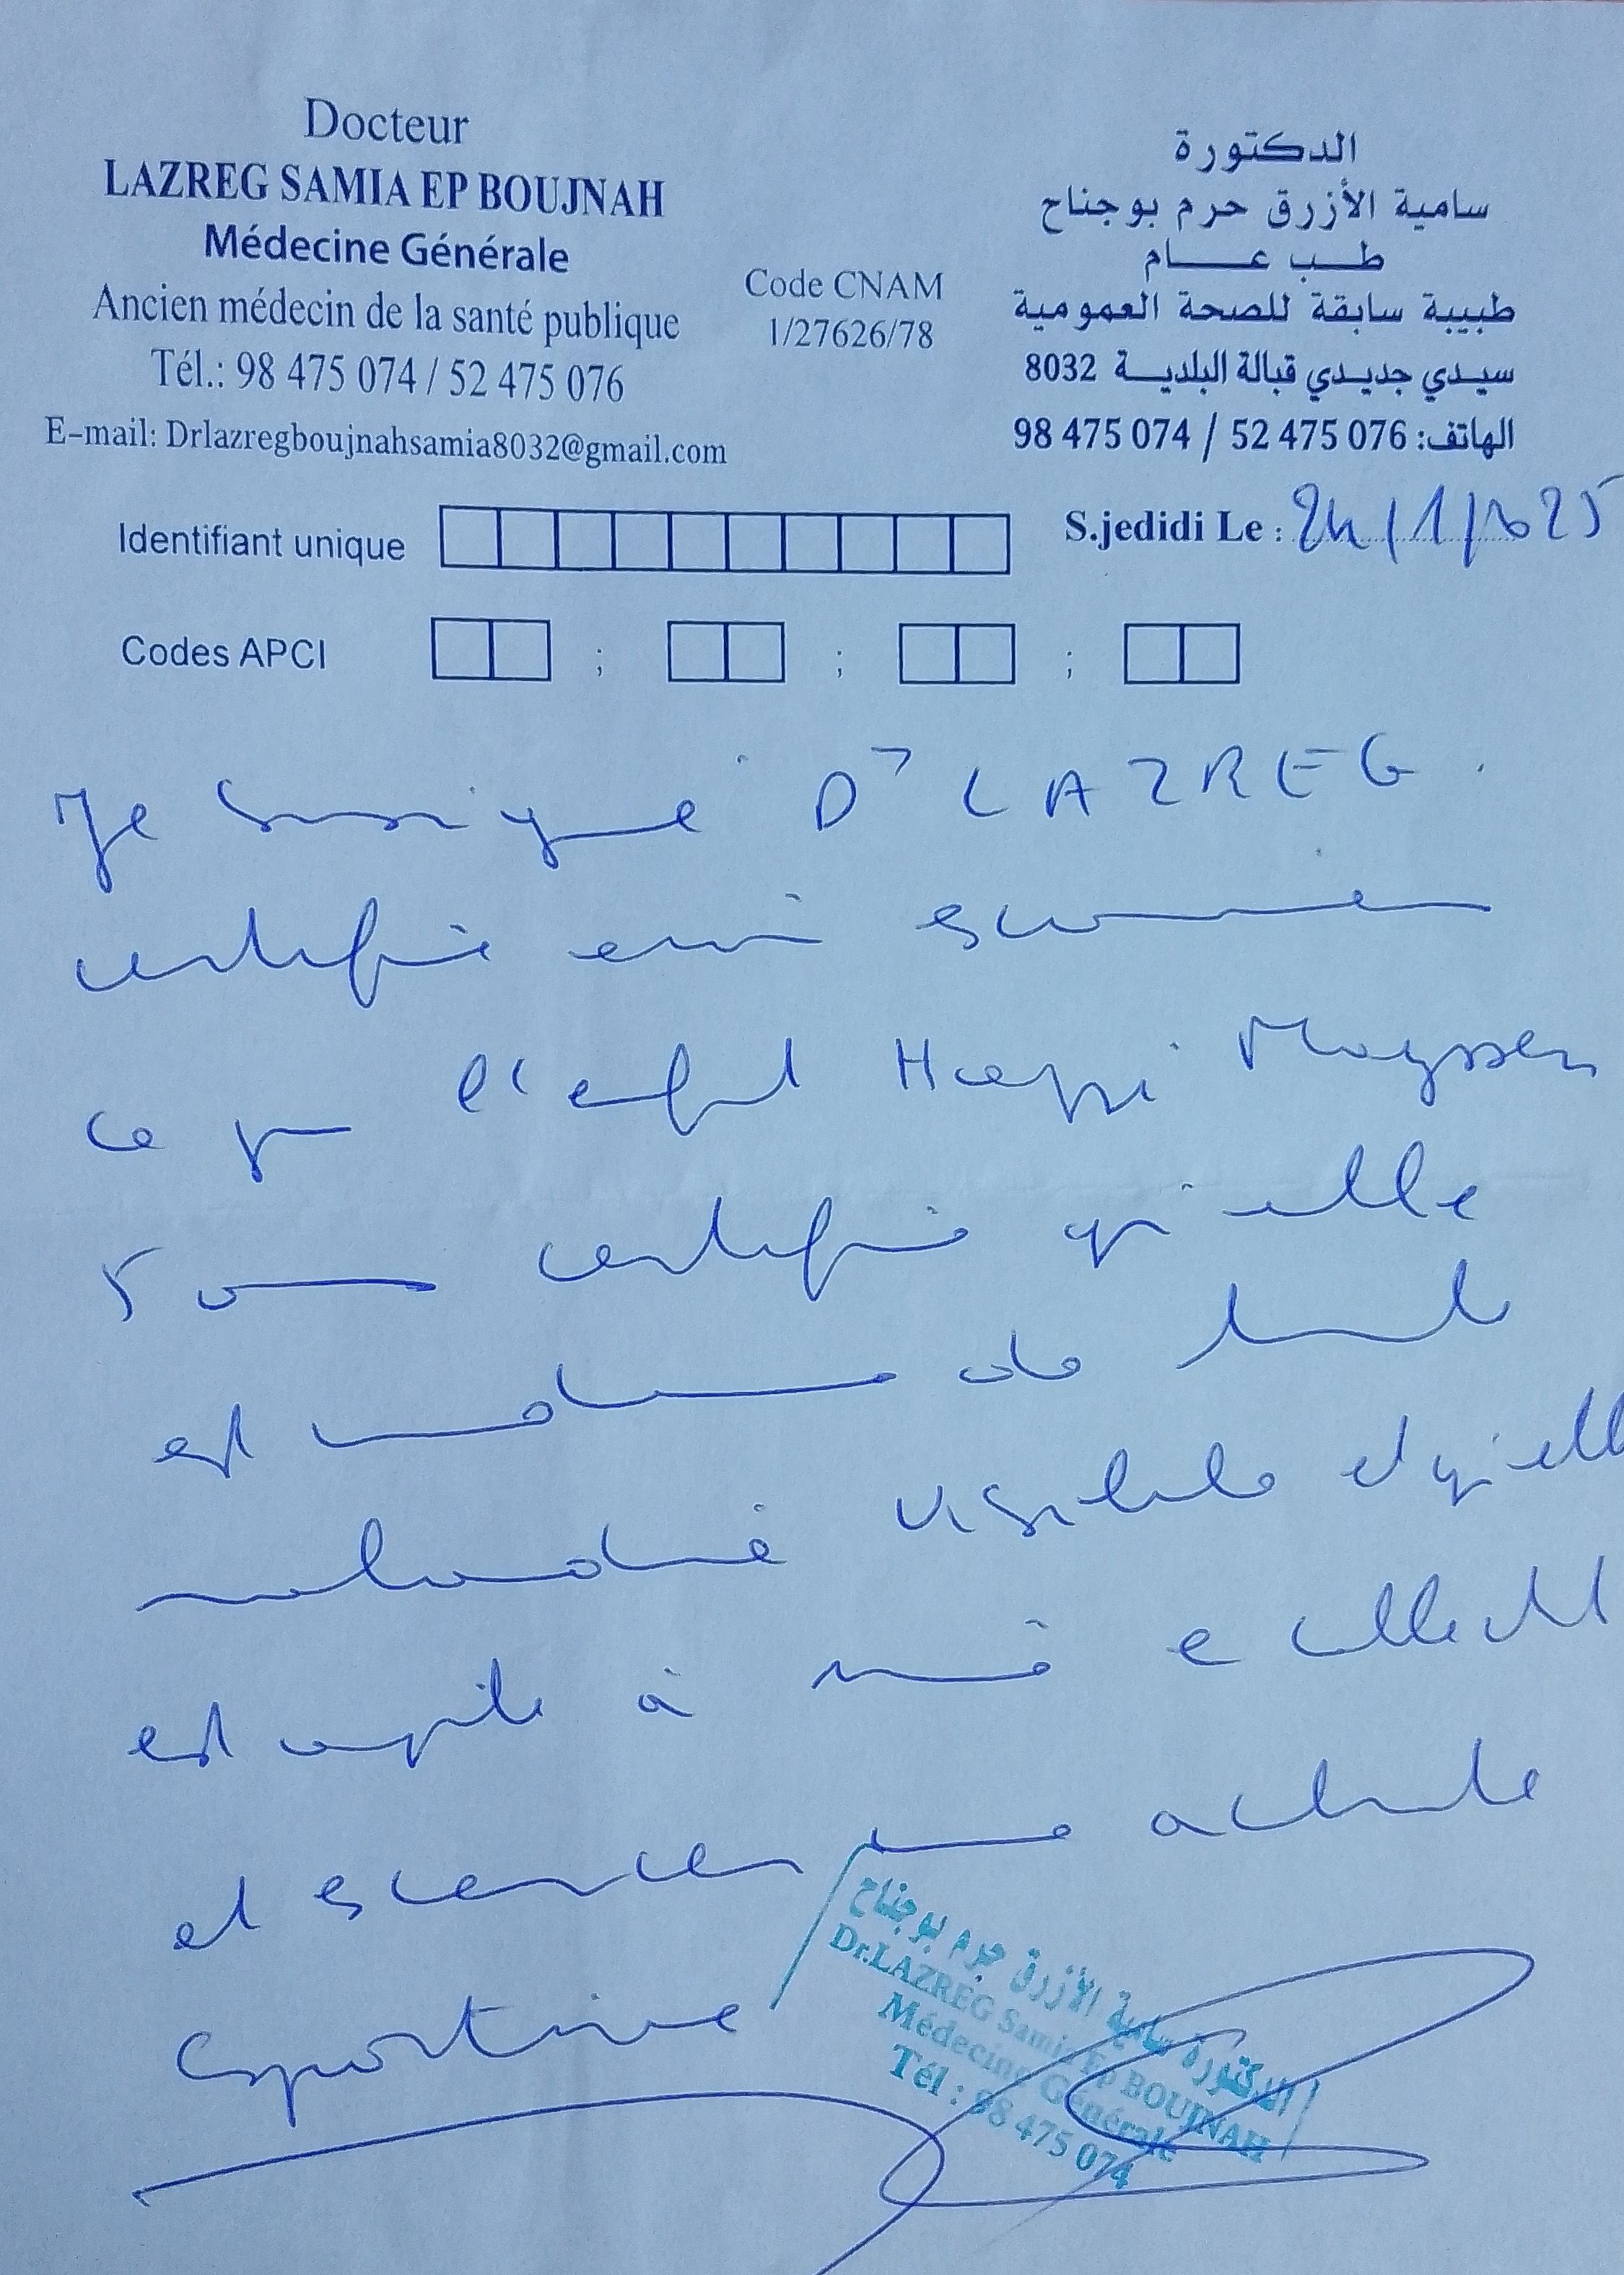 Docteur
LAZREG SAMIA EP BOUJNAH
Médecine Générale
Ancien médecin de la santé publique
Tél.: 98 475 074 / 52 475 076
E-mail: Drlazregboujnahsamia8032@gmail.com
Code CNAM
1/27626/78
الدكتورة
سامية الأزرق حرم بوجناح
طب عام
طبيبة سابقة للصحة العمومية
سيدي جديدي قبالة البلدية 8032
الهاتف: 98 475 074 / 52 475 076
Identifiant unique
S.jedidi Le : 24/1/2025
Codes APCI ; ; ;
Je soussigné Dr LAZREG
certifie avoir examiné
ce jour l'enfant
5 ans certifie qu'elle
est indemne de toute
maladie visible et qu'elle
est apte à
et exercer une activité
sportive
الدكتورة سامية الأزرق حرم بوجناح
Dr.LAZREG Samia Ep BOUJNAH
Médecine Générale
Tél : 98 475 074